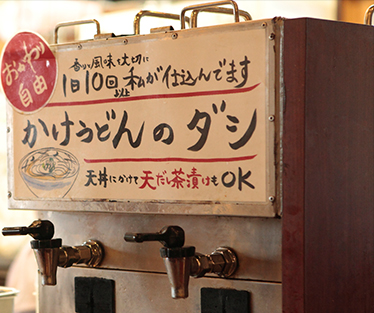 おかわり
自由
香り風味大切に
1日10回以上私が仕込んでます
かけうどんのダシ
天丼にかけて天だし茶漬けもOK